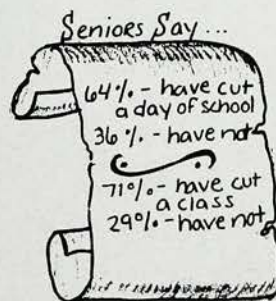 Seniors Say ...
64% - have cut
a day of school
36% - have not
71% - have cut
a class
29% - have not